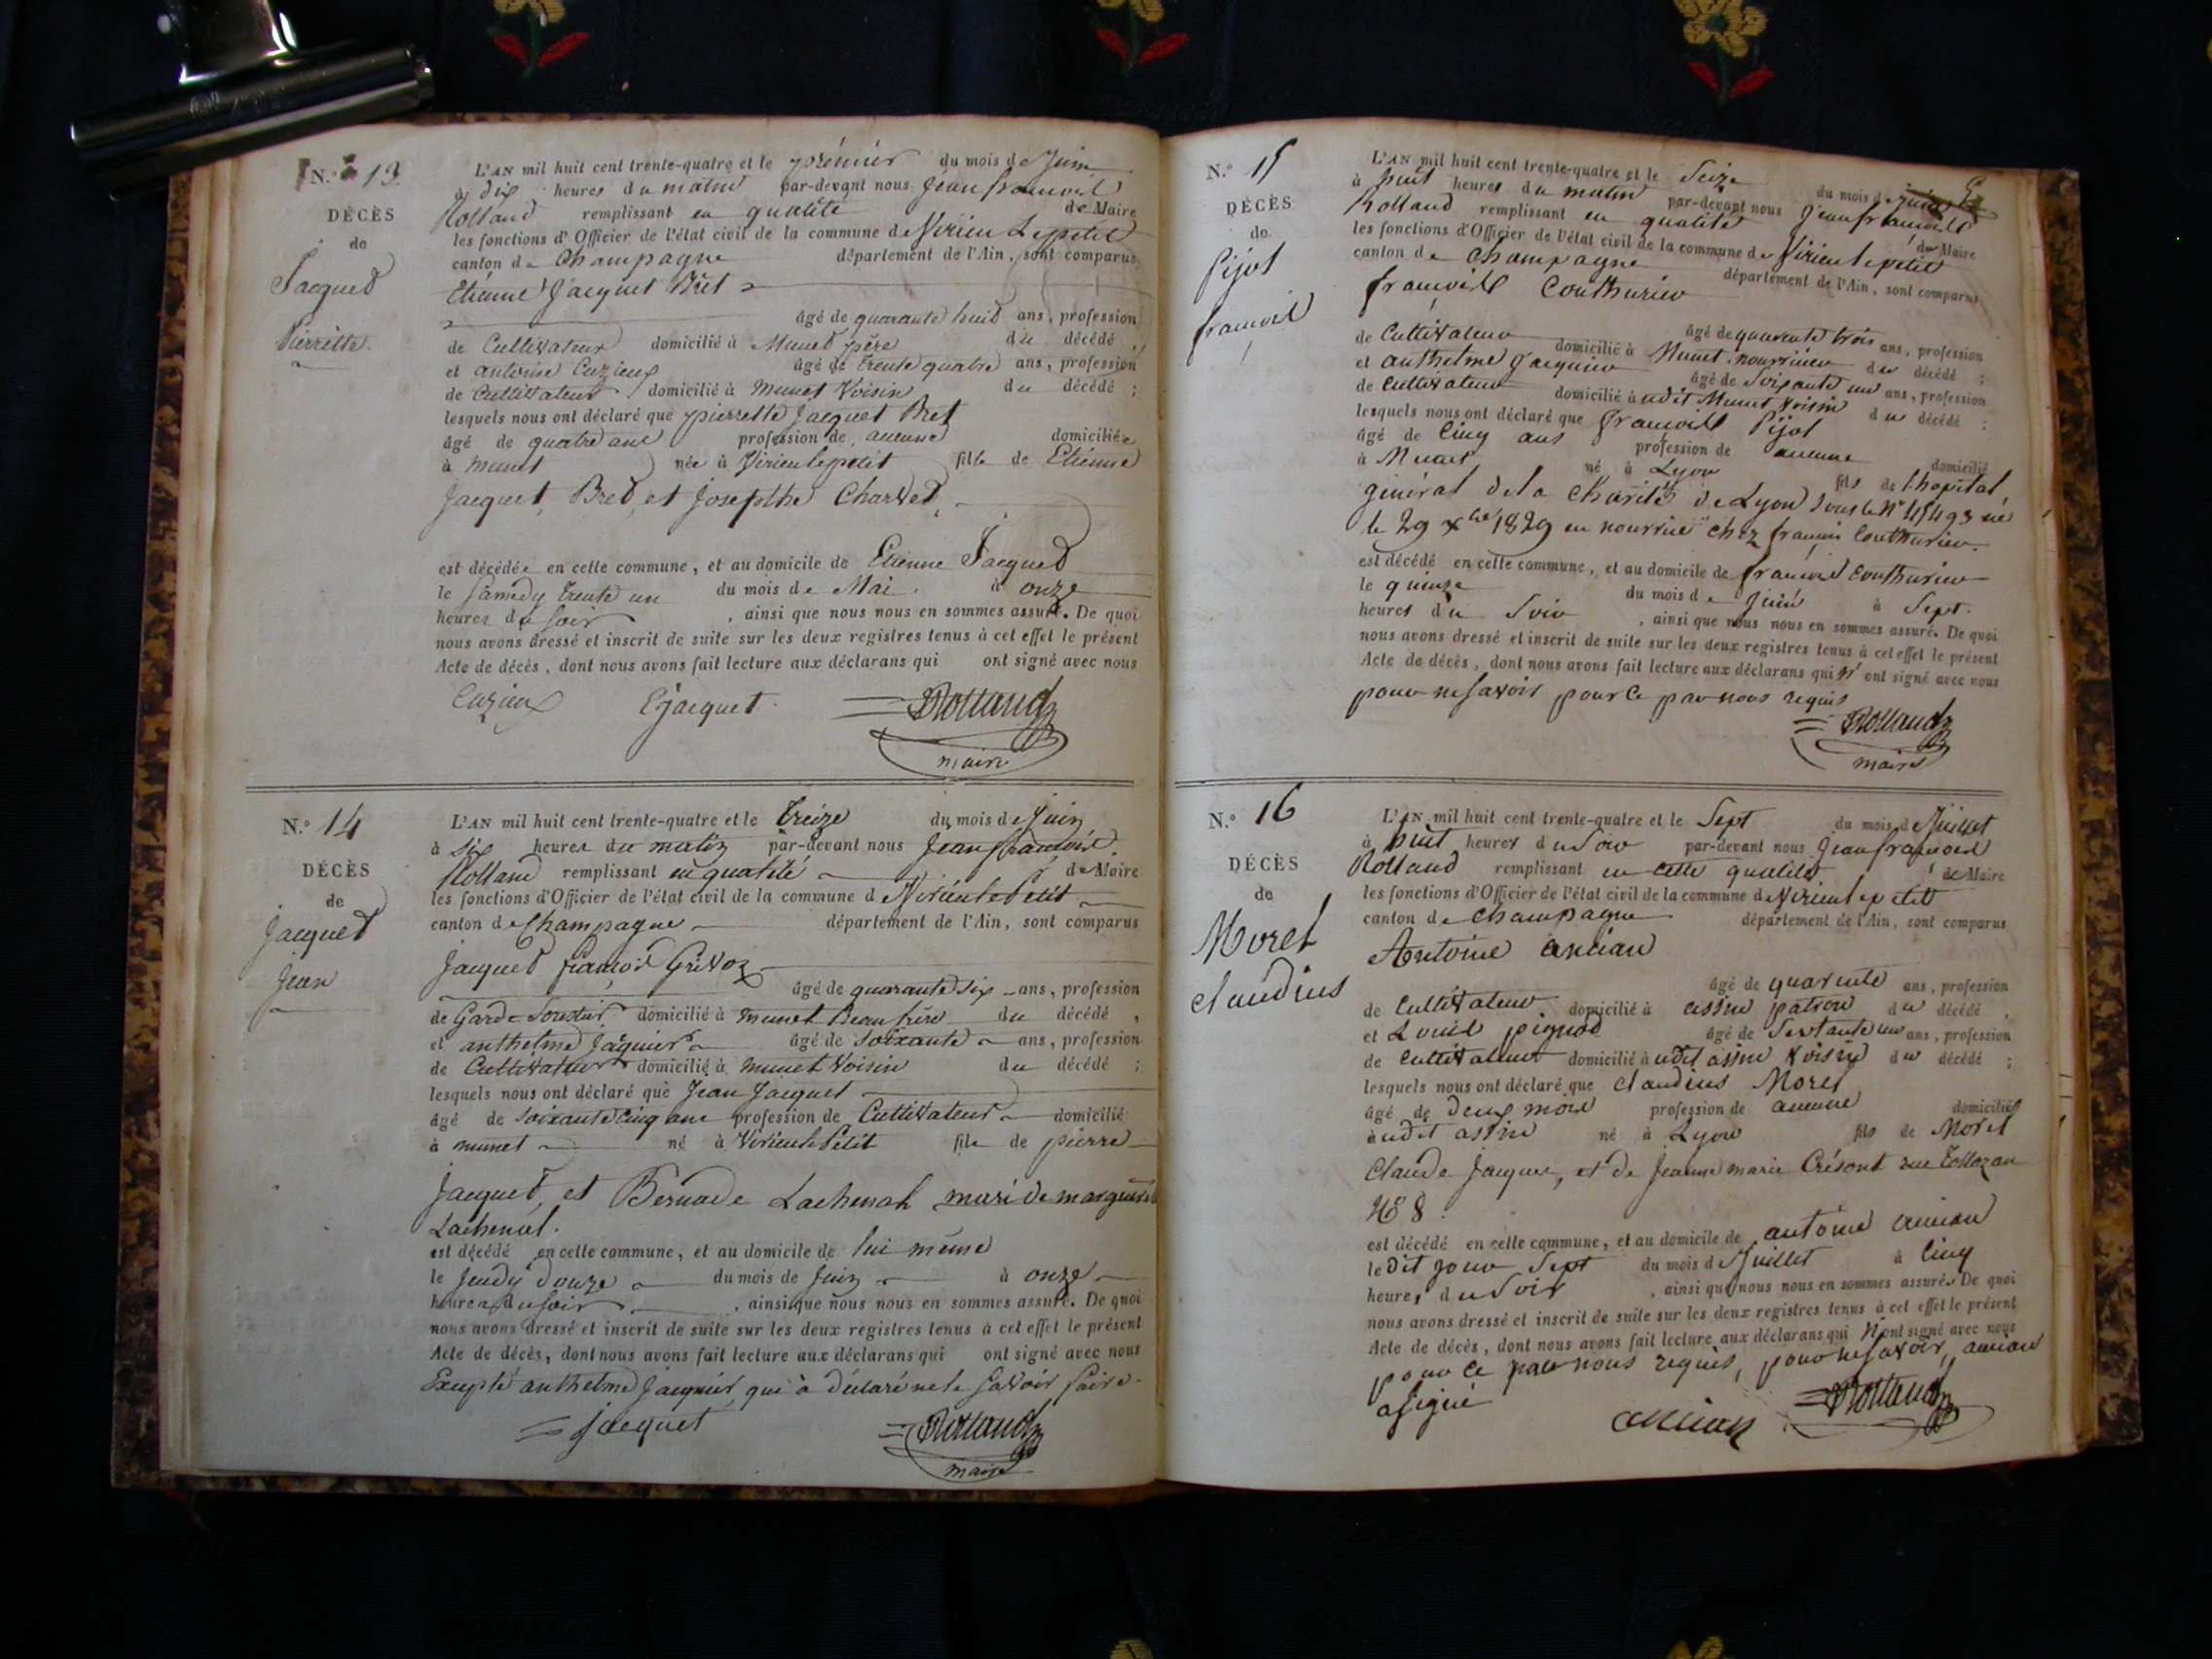 N.° 13.
DÉCÈS
de
Jacquet
Pierrette.
L'AN mil huit cent trente-quatre et le prémiér du mois de Juin
à dix heures du matin par-devant nous Jean françois
Rolland remplissant en qualité de Maire
les fonctions d'Officier de l'état civil de la commune de Virieu Lepetit
canton de Champagne département de l'Ain, sont comparus
Etienne Jacquet Bret
âgé de quarante huit ans, profession
de Cultivateur domicilié à Munet père du décédé,
et antoine Cuzieux âgé de trente quatre ans, profession
de Cultivateur domicilié à munet Voisin du décédé;
lesquels nous ont déclaré que pierrette Jacquet Bret
âgé de quatre ans profession de aucune domiciliée
à munet née à Virieulepetit fille de Etienne
Jacquet, Bret, et Josephte Charvet,
est décédée en cette commune, et au domicile de Etienne Jacquet
le Samedy trente un du mois de Mai. à onze
heures du soir, ainsi que nous nous en sommes assuré. De quoi
nous avons dressé et inscrit de suite sur les deux registres tenus à cet effet le présent
Acte de décès, dont nous avons fait lecture aux déclarans qui ont signé avec nous
Cuzieux Ejacquet. Rolland
maire
N.° 14
DÉCÈS
de
Jacquet
Jean
L'AN mil huit cent trente-quatre et le treize du mois de Juin
à six heures du matin par-devant nous Jean françois
Rolland remplissant en qualité de Maire
les fonctions d'Officier de l'état civil de la commune de Virieu le Petit
canton de Champagne département de l'Ain, sont comparus
Jacquet françois Grivoz
âgé de quarante six ans, profession
de Garde forestier domicilié à munet Beau frère du décédé,
et anthelme Jaquier âgé de soixante ans, profession
de Cultivateur domicilié à munet Voisin du décédé;
lesquels nous ont déclaré que Jean Jacquet
âgé de soixante cinq ans profession de Cultivateur domicilié
à munet né à Virieu le Petit fils de pierre
Jacquet, et Bernade Lachenal mari de marguerite
Lachenal.
est décédé en cette commune, et au domicile de lui même
le Jeudy douze du mois de Juin à onze
heures du soir, ainsi que nous nous en sommes assuré. De quoi
nous avons dressé et inscrit de suite sur les deux registres tenus à cet effet le présent
Acte de décès, dont nous avons fait lecture aux déclarans qui ont signé avec nous
Excepté anthelme Jacquier, qui à déclaré ne le savoir faire.
jacquet Rolland
maire
N.° 15
DÉCÈS
de
Pijot
françois
L'AN mil huit cent trente-quatre et le Seize du mois de juin
à huit heures du matin par-devant nous Jean françois
Rolland remplissant en qualité de Maire
les fonctions d'Officier de l'état civil de la commune de Virieu le petit
canton de Champagne département de l'Ain, sont comparus
françois Couthurier
âgé de quarente trois ans, profession
de Cultivateur domicilié à Munet nourricier du décédé;
et anthelme Jacquier âgé de Soixante un ans, profession
de Cultivateur domicilié à udit Munet voisin du décédé;
lesquels nous ont déclaré que françois Pijot
âgé de Cinq ans profession de aucune domicilié
à Munet né à Lyon fils de l'hopital
général de la Charité de Lyon sous le N° 45493 né
le 29 xbre 1829 en nourrice chez françois Couthurier.
est décédé en cette commune, et au domicile de françois Couthurier
le quinze du mois de juin à Sept.
heures du Soir, ainsi que nous nous en sommes assuré. De quoi
nous avons dressé et inscrit de suite sur les deux registres tenus à cet effet le présent
Acte de décès, dont nous avons fait lecture aux déclarans qui n' ont signé avec nous
pour ne savoir pour ce par nous requis
Rolland
maire
N.° 16
DÉCÈS
de
Moret
Claudius
L'AN mil huit cent trente-quatre et le Sept du mois de Juillet
à huit heures du Soir par-devant nous Jean françois
Rolland remplissant en cette qualité de Maire
les fonctions d'Officier de l'état civil de la commune de Virieu le petit
canton de Champagne département de l'Ain, sont comparus
Antoine Ancian
âgé de quarente ans, profession
de Cultivateur domicilié à assin patron du décédé,
et Louis pignod âgé de Sextante un ans, profession
de Cultivateur domicilié à udit assin voisin du décédé;
lesquels nous ont déclaré que Claudius Moret
âgé de deux mois profession de aucune domicilié
à udit assin né à Lyon fils de Moret
Claude Jacques, et de Jeanne marie Crésont rue Tollozan
N° 8.
est décédé en cette commune, et au domicile de antoine ancian
le Dit jour Sept du mois de Juillet à Cinq
heures du Soir, ainsi que nous nous en sommes assuré. De quoi
nous avons dressé et inscrit de suite sur les deux registres tenus à cet effet le présent
Acte de décès, dont nous avons fait lecture aux déclarans qui N'ont signé avec nous
pour ce par nous requis, pour ne savoir, ancian
a signé
ancian Rolland